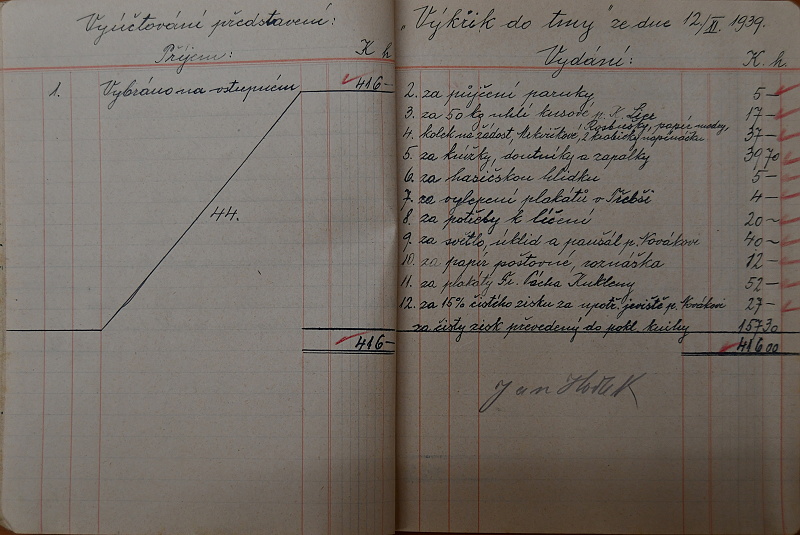 Vyúčtování představení:
Příjem: K h
1. Vybráno na vstupném 416-
44.
416-
"Výkřik do tmy" ze dne 12/II. 1939.
Vydání: K. h.
2. za půjčení paruky 5-
3. za 50 kg uhlí kusové p. 17-
4. kolek na žádost, papír 37-
5. za knížky, doutníky a zápalky 39 70
6. za hasičskou hlídku 5-
7. za vylepení plakátů v Třebši 4-
8. za potřeby k líčení 20-
9. za světlo, úklid a paušál p. Novákovi 40-
10. za papír poštovné, roznáška 12-
11. za plakáty Fr. Cácha Kukleny 52-
12. za 15% čistého zisku za upotř. jeviště p. Novákovi 27-
za čistý zisk převedený do pokl. knihy 157 30
416 00
Jan